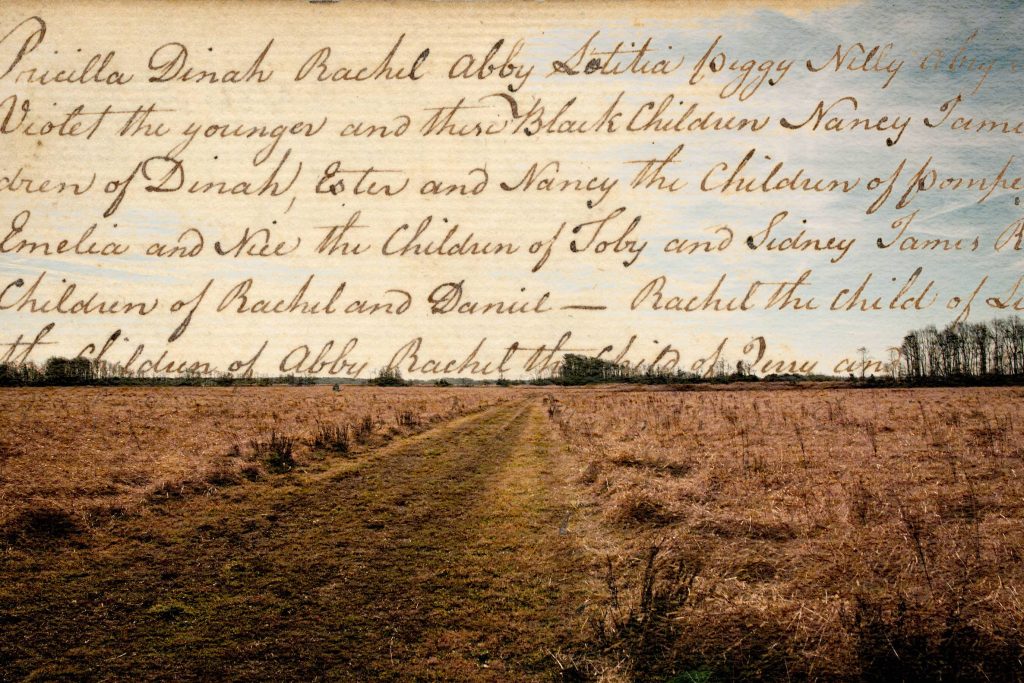 Pricilla Dinah Rachel Abby Letitia peggy Nilly Abby
Violet the younger and these Black Children Nancy Jame
dren of Dinah, Ester and Nancy the Children of pompe
Emelia and Nice the Children of Toby and Sidney James R
Children of Rachel and Daniel — Rachel the Child of
the Children of Abby Rachel the Child of Jerry an